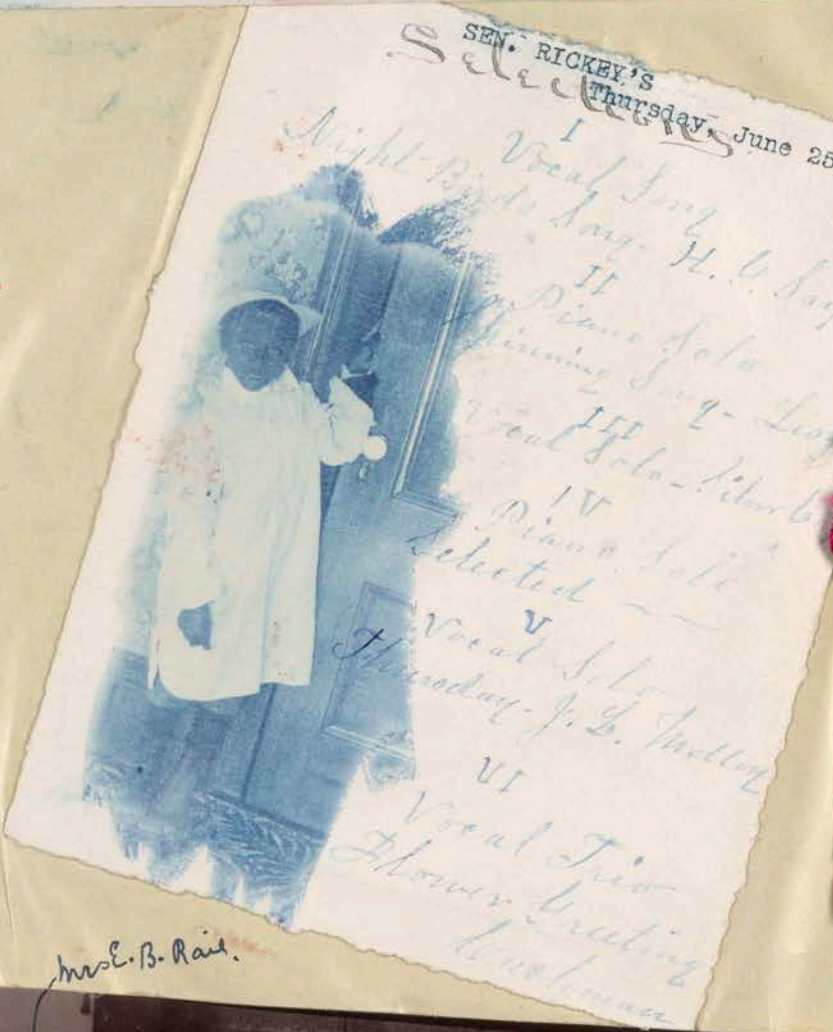 SEN. RICKEY'S
Selections
Thursday, June 25
I
Vocal Song
Night Birds Song. H. C.
II
Piano Solo
Spinning Song -
III
Vocal Solo -
IV
Piano Solo
Selected
V
Vocal Solo
Thursday - J. L. Molloy
VI
Vocal Trio
Flower Greeting
Mrs E. B. Rail.